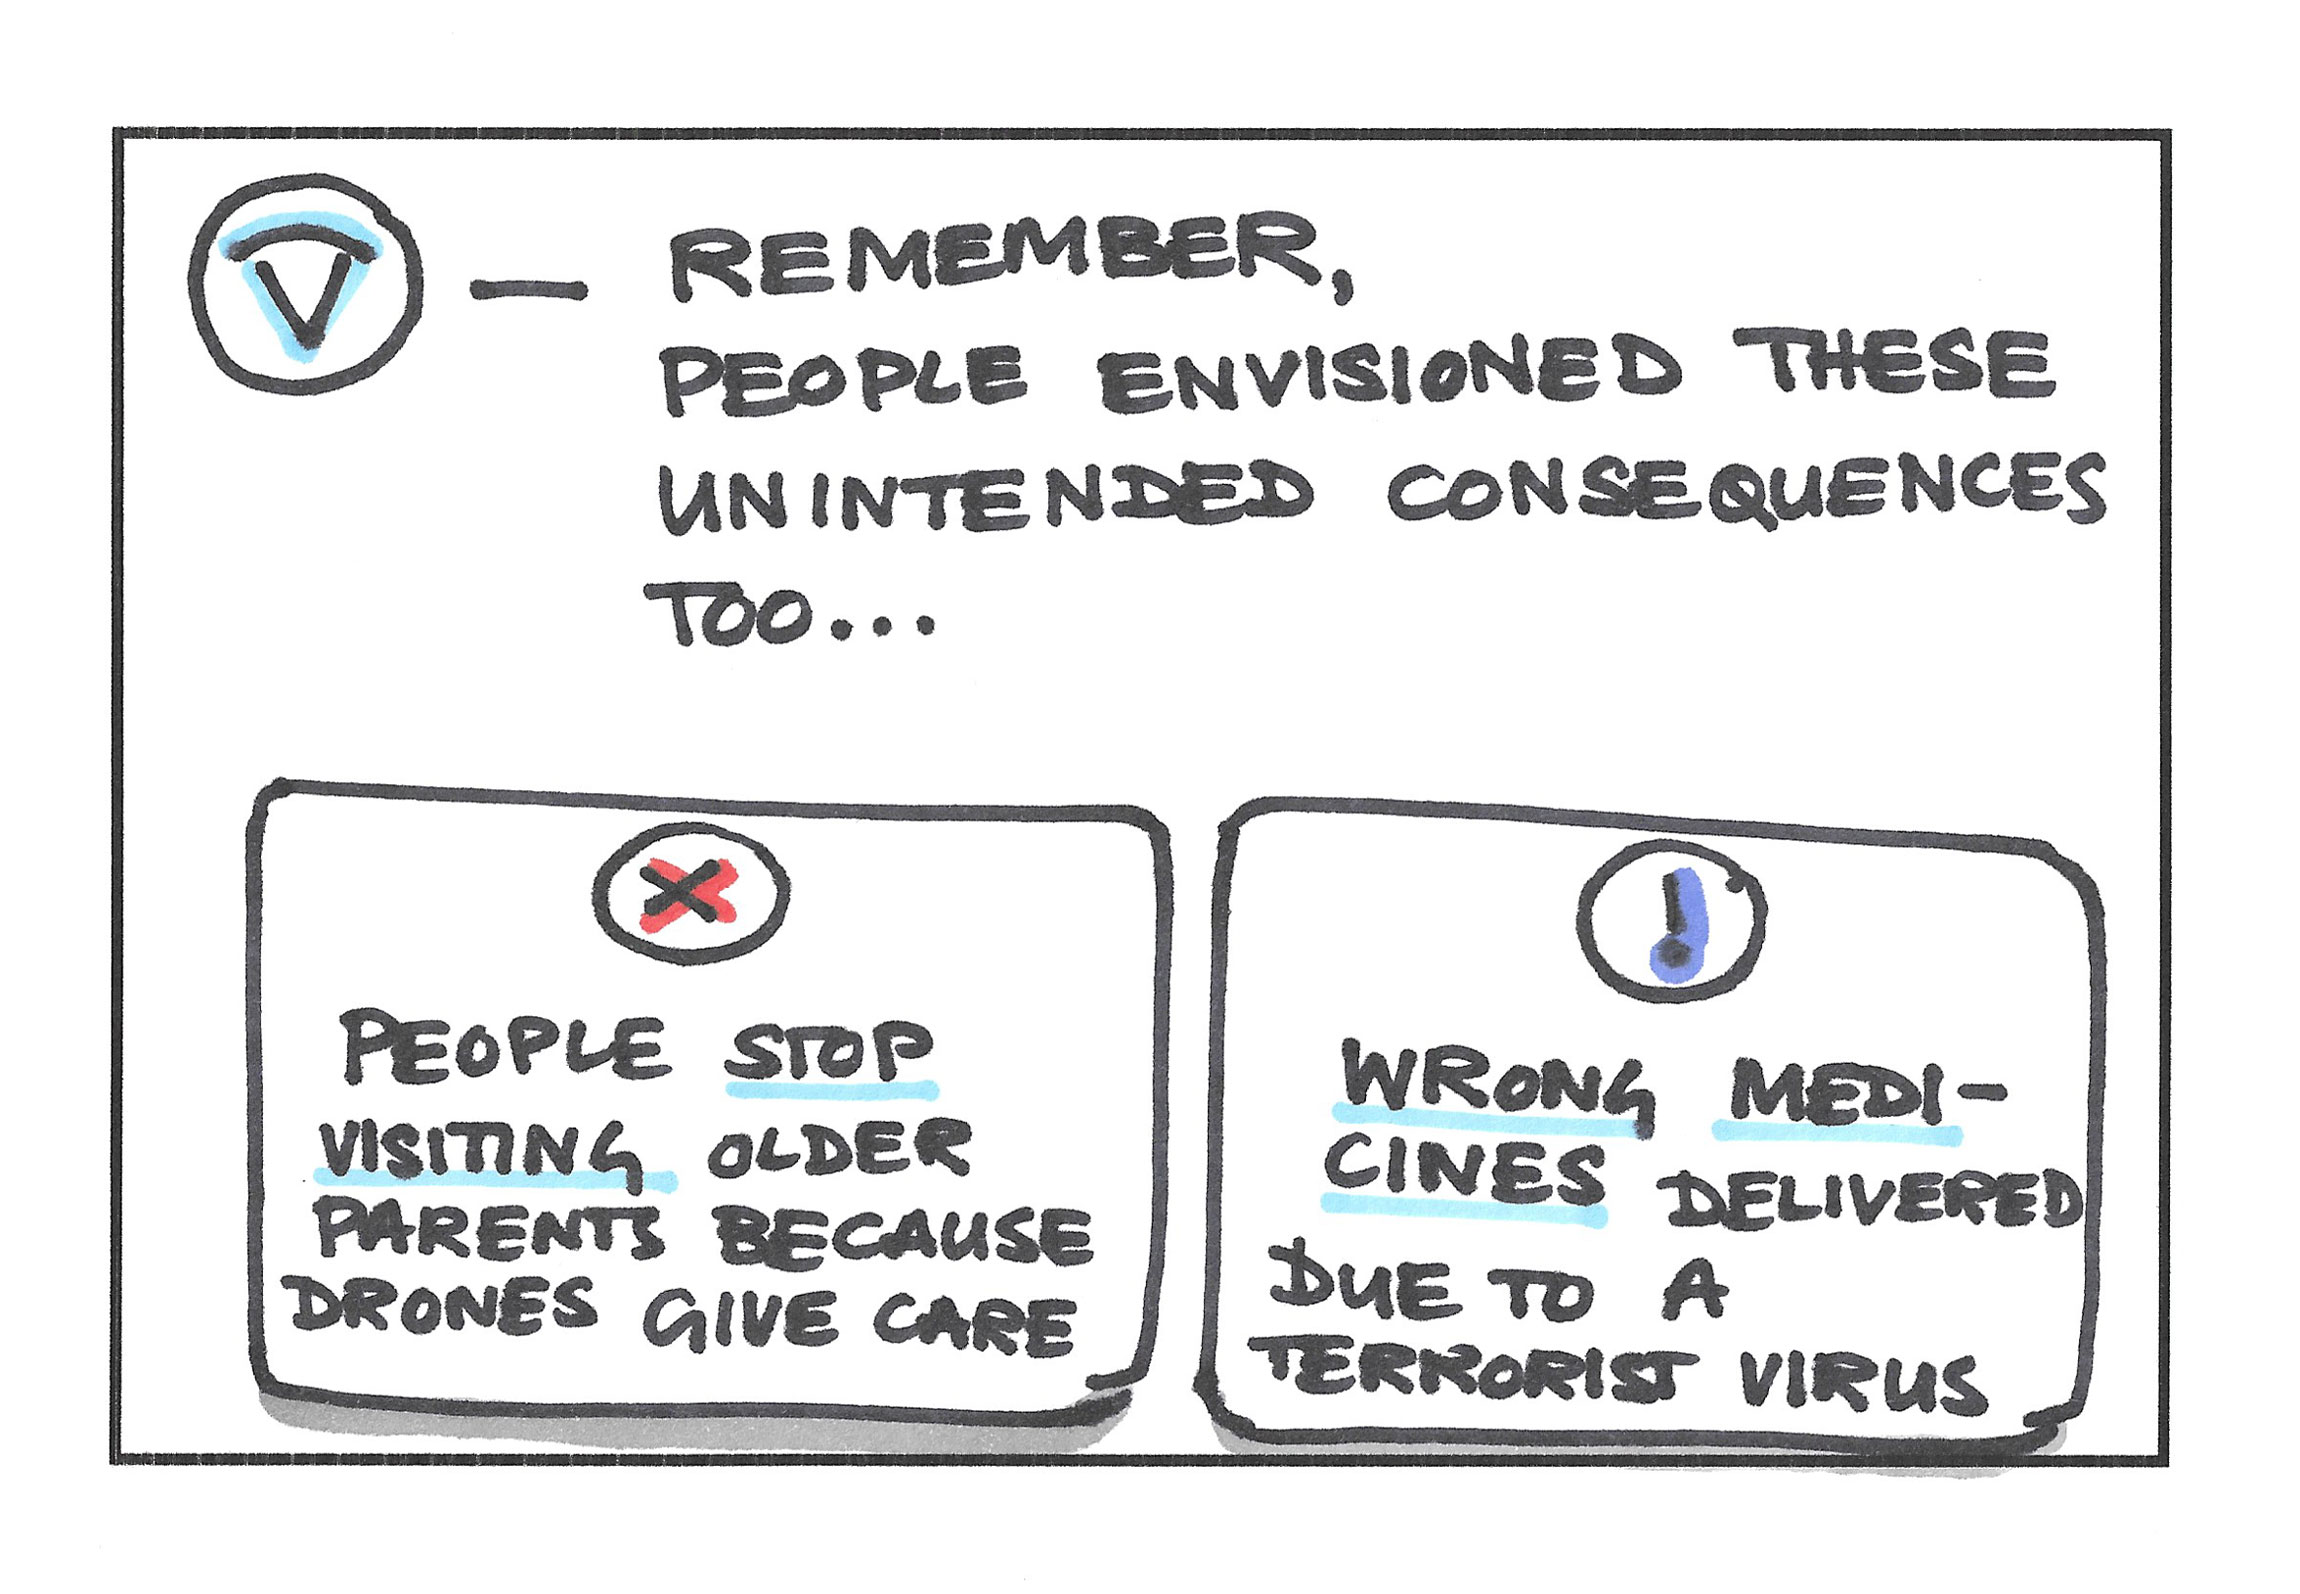 V — REMEMBER,
PEOPLE ENVISIONED THESE
UNINTENDED CONSEQUENCES
TOO...
PEOPLE STOP
VISITING OLDER
PARENTS BECAUSE
DRONES GIVE CARE
WRONG MEDI-
CINES DELIVERED
DUE TO A
TERRORIST VIRUS